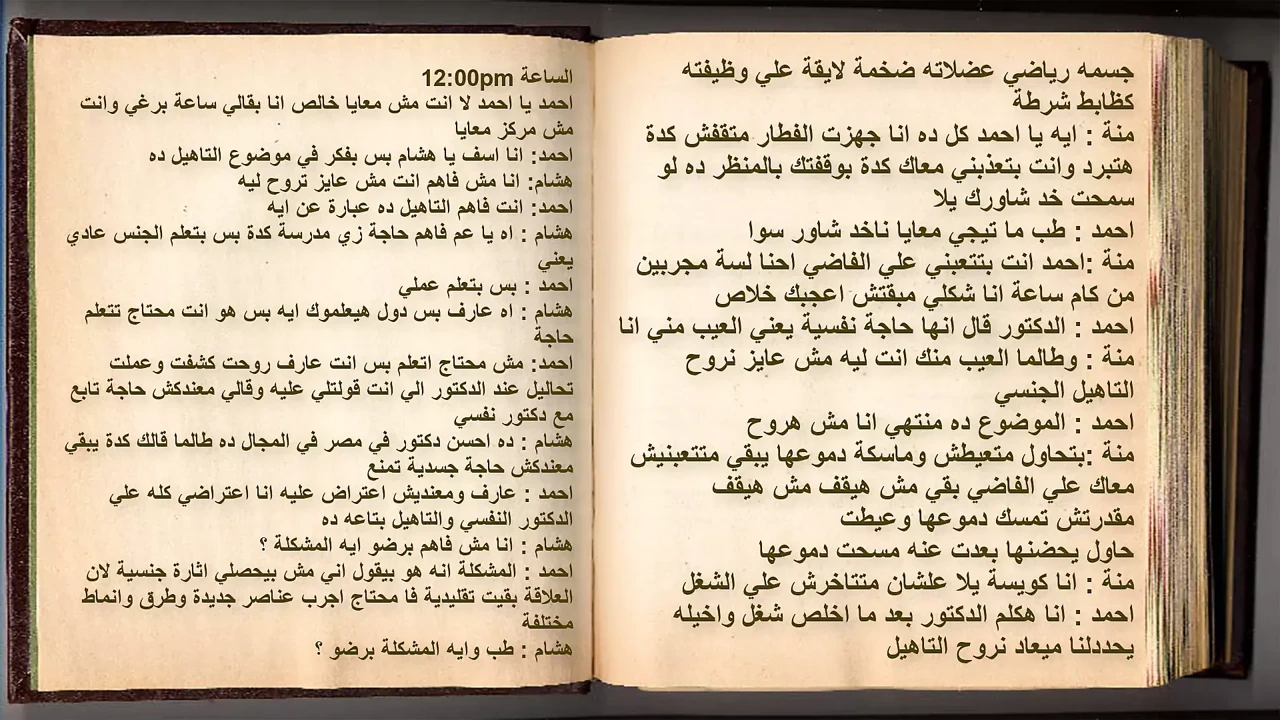 جسمه رياضي عضلاته ضخمة لايقة علي وظيفته
كظابط شرطة
منة : ايه يا احمد كل ده انا جهزت الفطار متقفش كدة
هتبرد وانت بتعذبني معاك كدة بوقفتك بالمنظر ده لو
سمحت خد شاورك يلا
احمد : طب ما تيجي معايا ناخد شاور سوا
منة :احمد انت بتتعبني علي الفاضي احنا لسة مجربين
من كام ساعة انا شكلي مبقتش اعجبك خلاص
احمد : الدكتور قال انها حاجة نفسية يعني العيب مني انا
منة : وطالما العيب منك انت ليه مش عايز نروح
التاهيل الجنسي
احمد : الموضوع ده منتهي انا مش هروح
منة :بتحاول متعيطش وماسكة دموعها يبقي متتعبنيش
معاك علي الفاضي بقي مش هيقف مش هيقف
مقدرتش تمسك دموعها وعيطت
حاول يحضنها بعدت عنه مسحت دموعها
منة : انا كويسة يلا علشان متتاخرش علي الشغل
احمد : انا هكلم الدكتور بعد ما اخلص شغل واخيله
يحددلنا ميعاد نروح التاهيل
الساعة 12:00pm
احمد يا احمد لا انت مش معايا خالص انا بقالي ساعة برغي وانت
مش مركز معايا
احمد: انا اسف يا هشام بس بفكر في موضوع التاهيل ده
هشام: انا مش فاهم انت مش عايز تروح ليه
احمد: انت فاهم التاهيل ده عبارة عن ايه
هشام : اه يا عم فاهم حاجة زي مدرسة كدة بس بتعلم الجنس عادي
يعني
احمد : بس بتعلم عملي
هشام : اه عارف بس دول هيعلموك ايه بس هو انت محتاج تتعلم
حاجة
احمد: مش محتاج اتعلم بس انت عارف روحت كشفت وعملت
تحاليل عند الدكتور الي انت قولتلي عليه وقالي معندكش حاجة تابع
مع دكتور نفسي
هشام : ده احسن دكتور في مصر في المجال ده طالما قالك كدة يبقي
معندكش حاجة جسدية تمنع
احمد : عارف ومعنديش اعتراض عليه انا اعتراضي كله علي
الدكتور النفسي والتاهيل بتاعه ده
هشام : انا مش فاهم برضو ايه المشكلة ؟
احمد : المشكلة انه هو بيقول اني مش بيحصلي اثارة جنسية لان
العلاقة بقيت تقليدية فا محتاج اجرب عناصر جديدة وطرق وانماط
مختلفة
هشام : طب وايه المشكلة برضو ؟